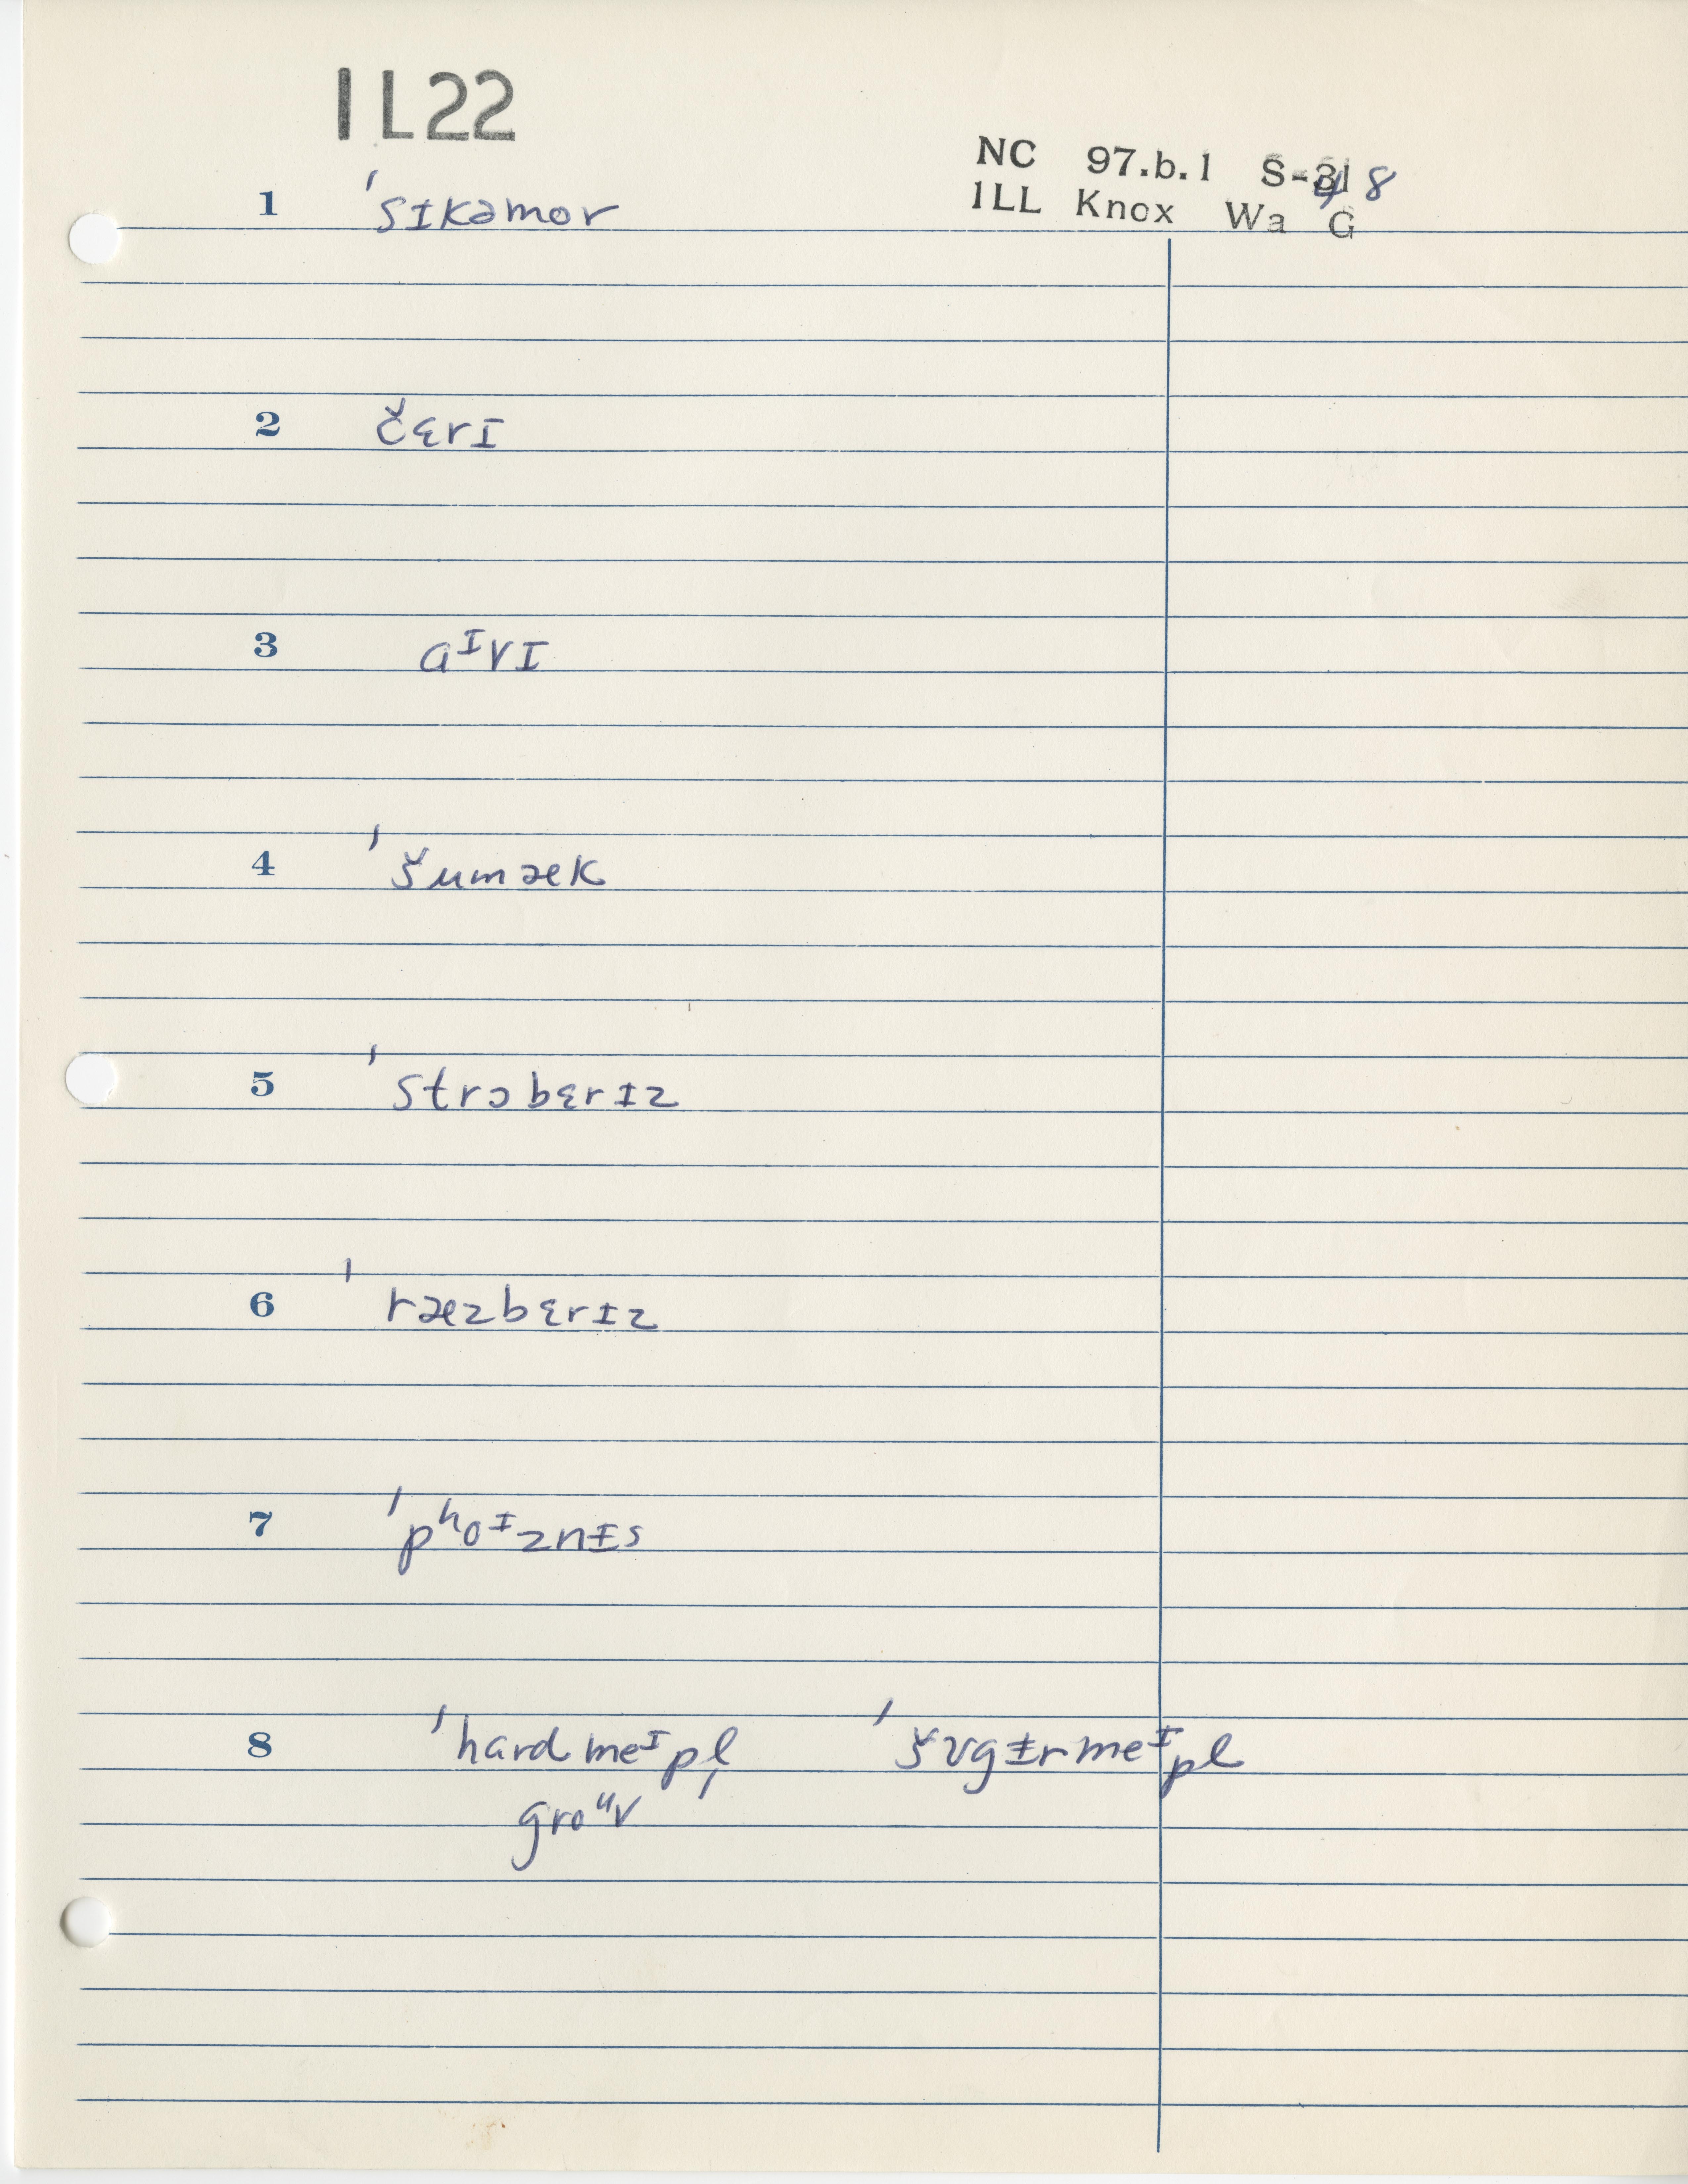 IL22
NC 97.b.1 S-48
ILL Knox Wa G
1 ˈsɪkəmor
2 čɛrɪ
3 aᶦvɪ
4 ˈšumæk
5 ˈstrɔbɛrɪz
6 ˈræzbɛrɪz
7 ˈpʰoᶦznɨs
8 ˈhardmeᶦpl̩ ˈšʊgɨrmeᶦpl
groᵘv